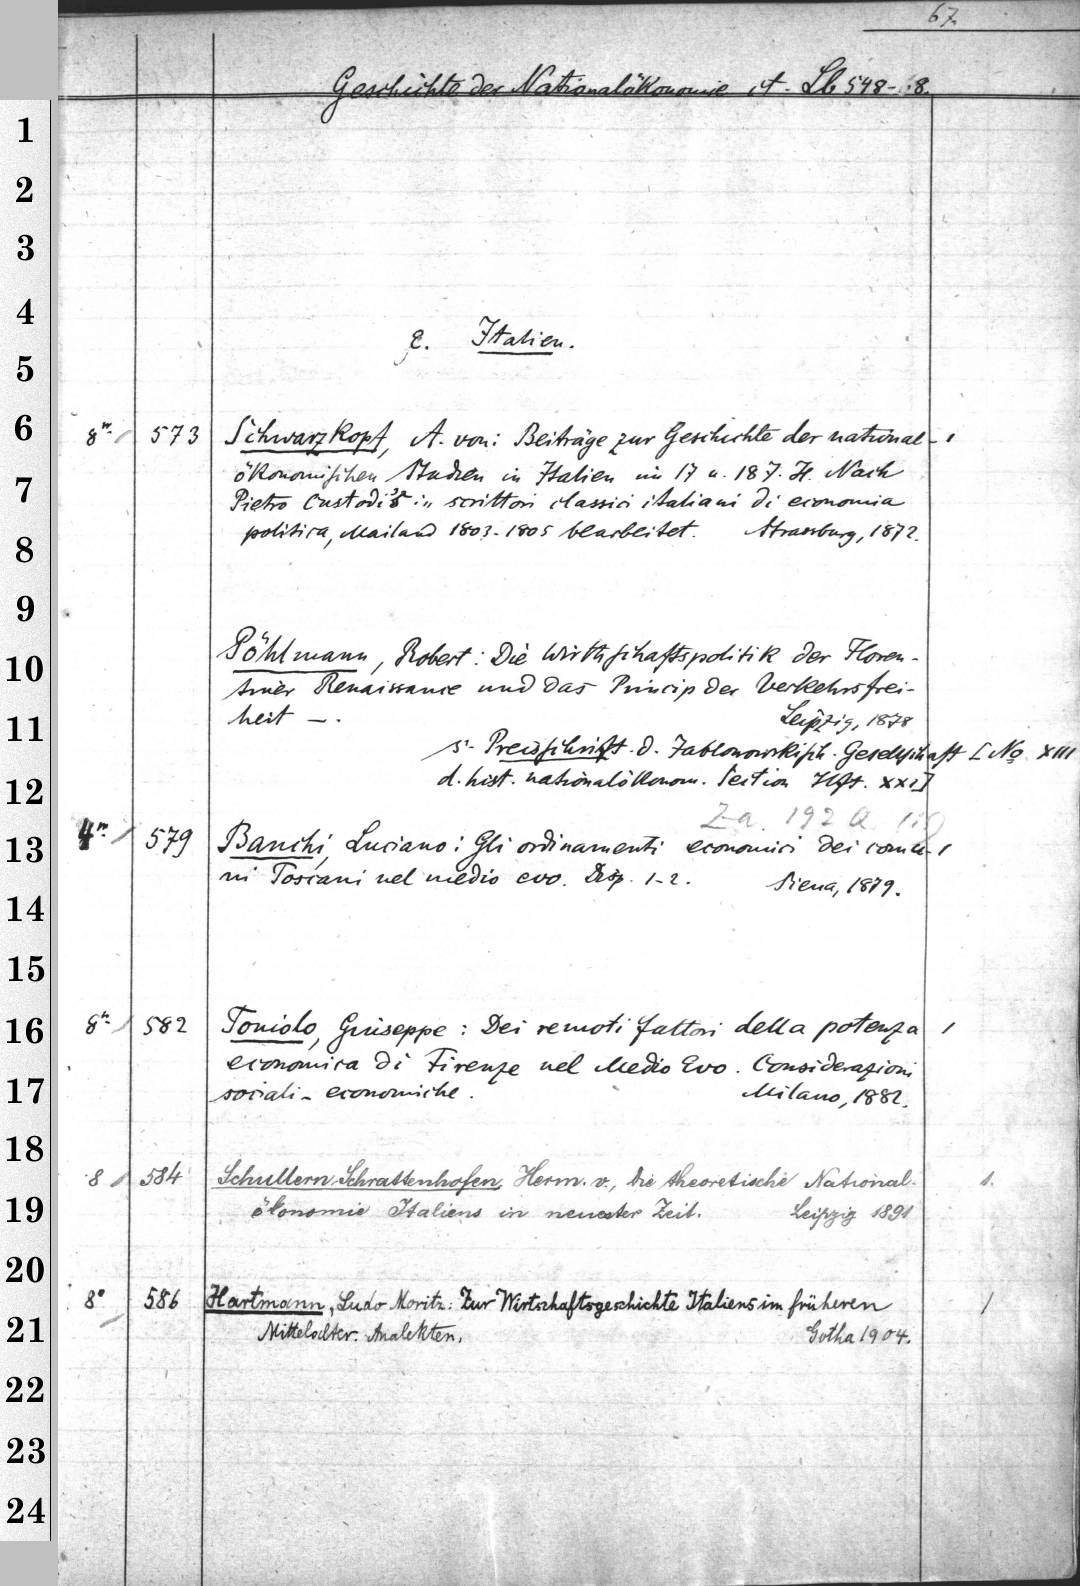 67.
Geschichte der Nationalökonomie A. Lb 548- 8.
1
2
3
4
e. Italien.
5
6
8° 573 Schwarzkopf, A. von: Beiträge zur Geschichte der national- 1
ökonomischen Studien in Italien im 17 u. 18 J. H. Nach
7
Pietro Custodi's: „ scrittori classici italiani di economia
politica, Mailand 1803-1805 bearbeitet. Strassburg, 1872.
8
9
10
Pöhlmann, Robert: Die Wirthschaftspolitik der Floren-
tiner Renaissance und das Princip der Verkehrsfrei-
11
heit —. Leipzig, 1878
s. Preisschrift d. Jablonowskisch. Gesellschaft [No XIII
12
d. hist. nationalökonom. Section Hft. XXI]
Za 192 a
13
4° 579 Banchi, Luciano: Gli ordinamenti economici dei comu- 1
ni Toscani nel medio evo. Disp. 1-2. Siena, 1879.
14
15
16
8° 582 Toniolo, Giuseppe: Dei remoti fattori della potenza 1
economica di Firenze nel Medio Evo. Considerazioni
17
sociali-economiche. Milano, 1882.
18
8 584 Schullern Schrattenhofen, Herm. v., Die theoretische National- 1.
19
ökonomie Italiens in neuester Zeit. Leipzig 1891
20
8° 586 Hartmann, Ludo Moritz: Zur Wirtschaftsgeschichte Italiens im früheren 1
21
Mittelalter. Analekten. Gotha 1904.
22
23
24